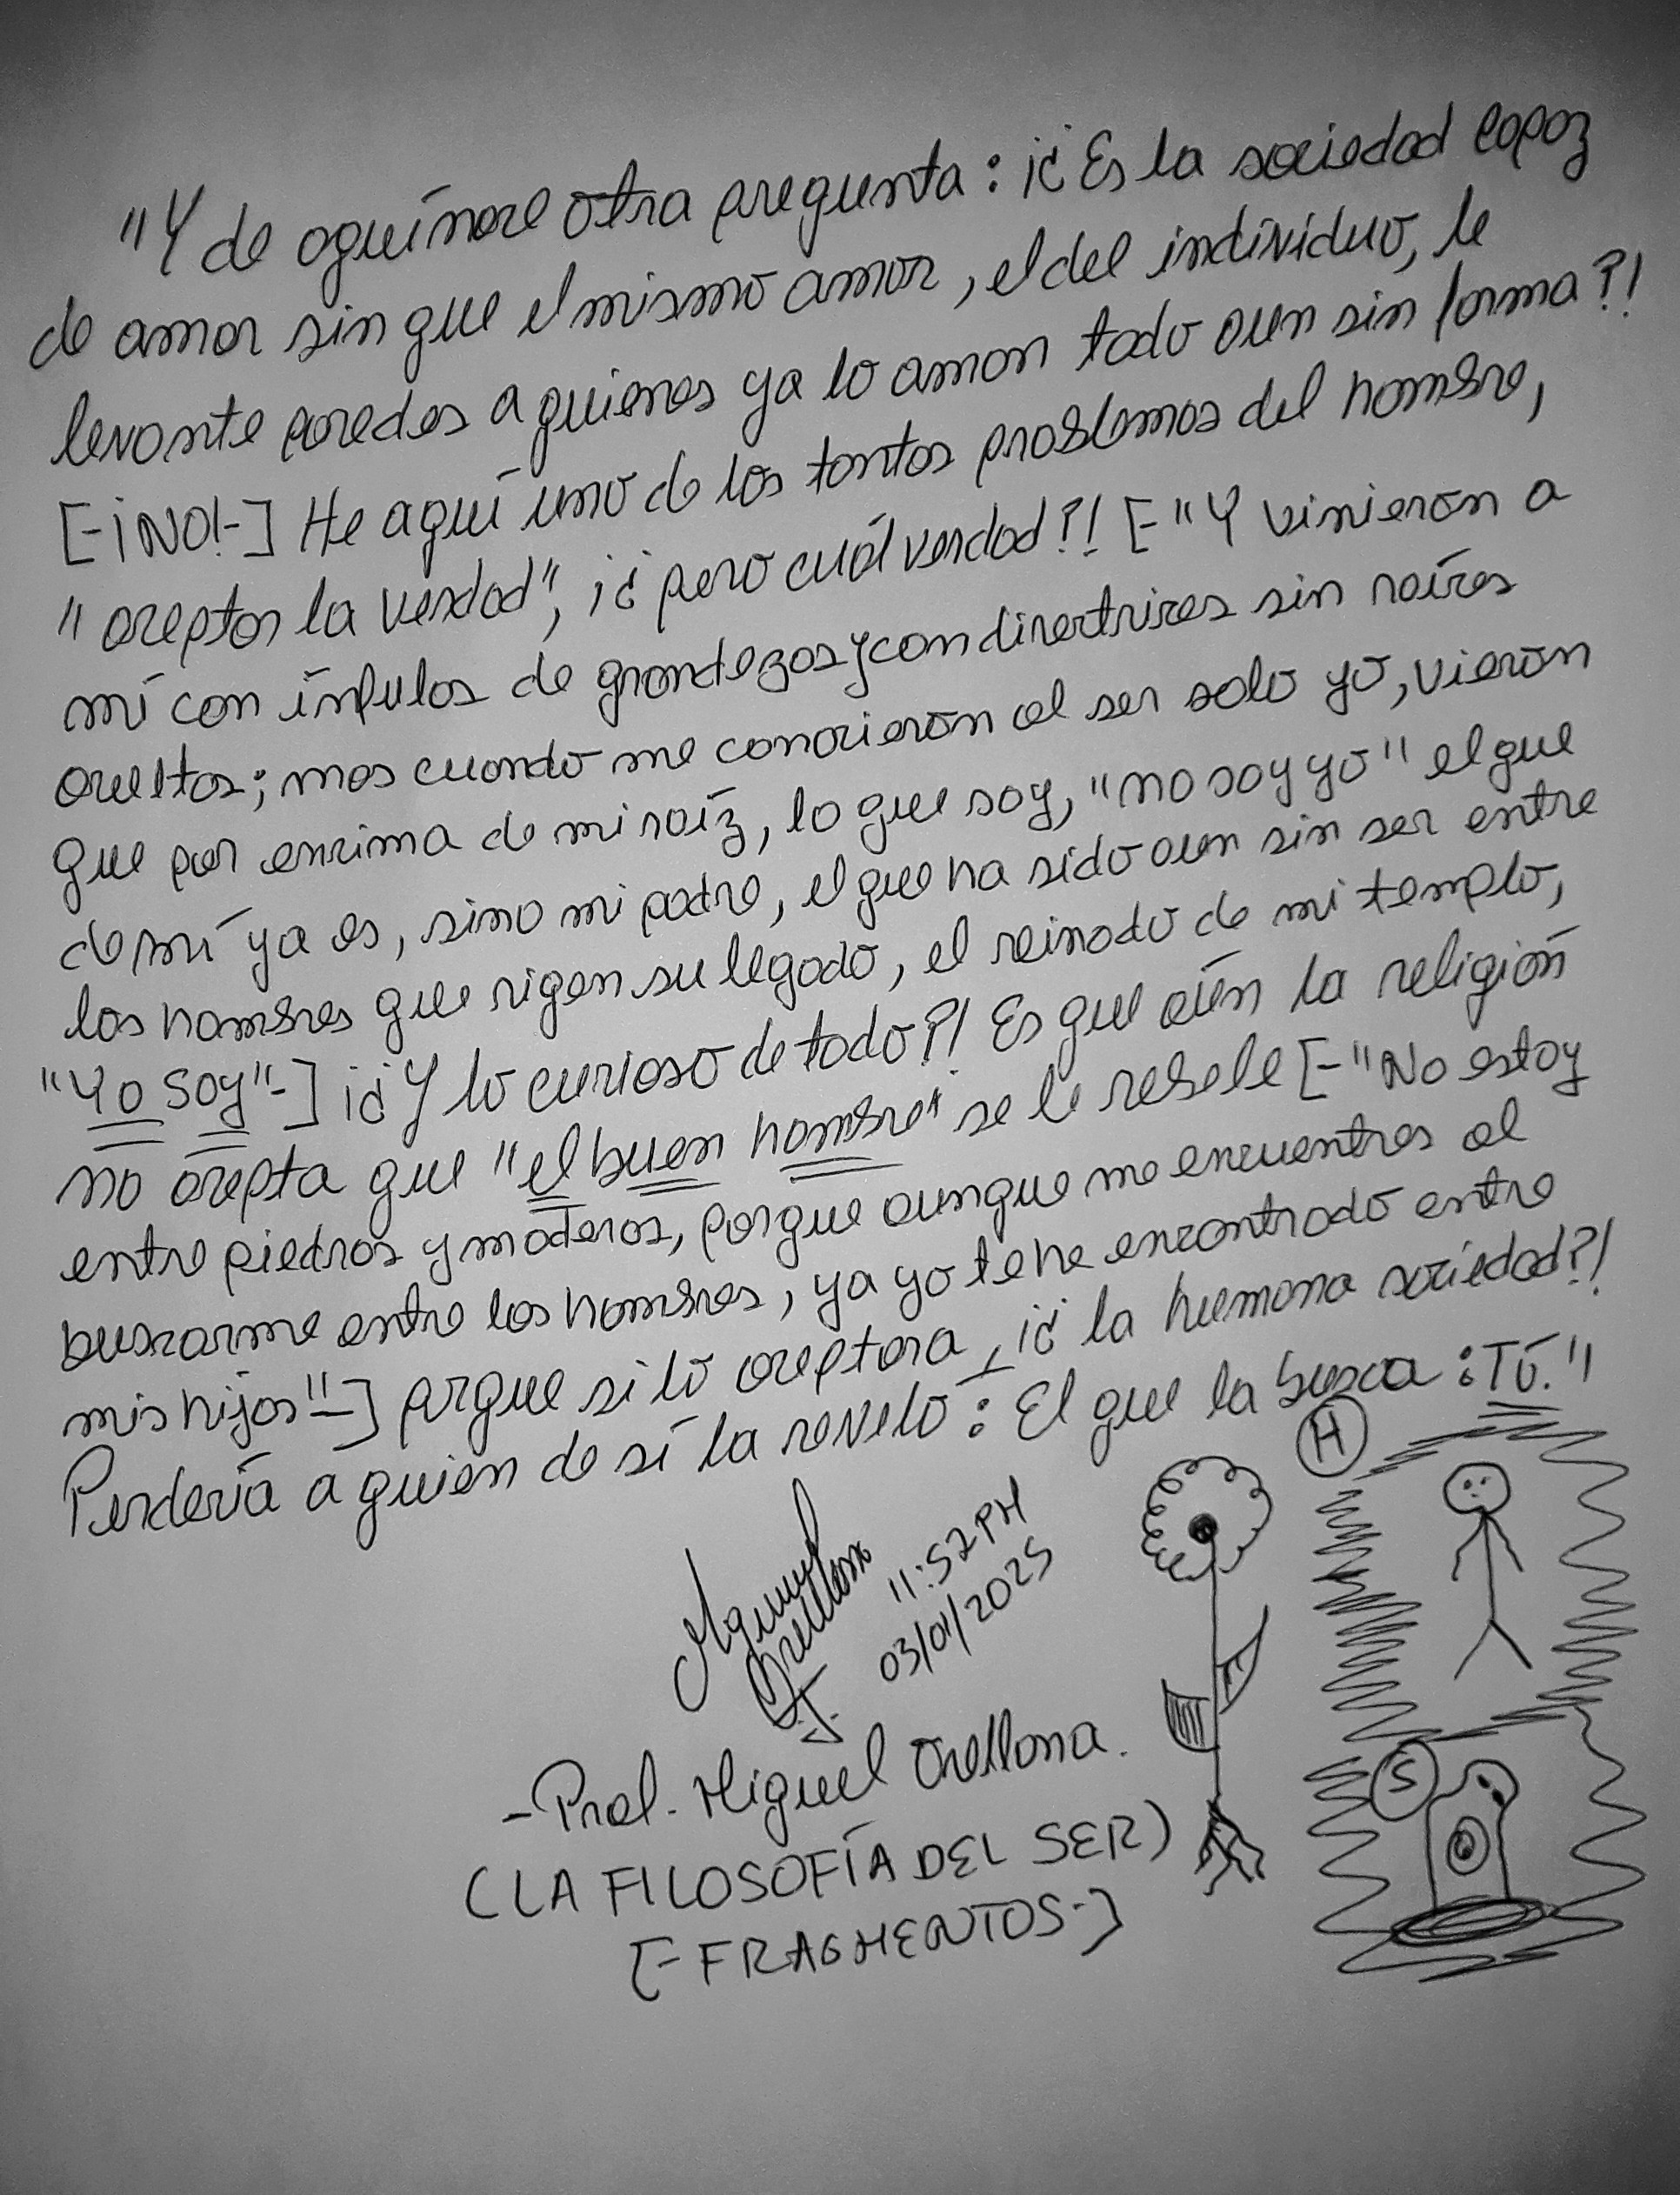 "Y de aquí nace otra pregunta: ¡¿Es la sociedad capaz
de amar sin que el mismo amor, el del individuo, le
levante paredes a quienes ya lo aman todo aun sin forma?!
[-¡NO!-] He aquí uno de los tontos problemas del hombre,
"aceptar la verdad", ¡¿pero cuál verdad?! [-"Y vinieron a
mí con ínfulas de grandezas y con directrices sin raíces
ocultas; mas cuando me conocieron al ser solo yo, vieron
que por encima de mi raíz, lo que soy, "no soy yo" el que
de mí ya es, sino mi padre, el que ha sido aun sin ser entre
los hombres que rigen su legado, el reinado de mi templo,
"Yo soy"-] ¡¿Y lo curioso de todo?! Es que aún la religión
no acepta que "el buen hombre" se le rebele [-"No estoy
entre piedras y maderas, porque aunque me encuentres al
buscarme entre los hombres, ya yo te he encontrado entre
mis hijos"-] porque si lo aceptara, ¡¿la humana sociedad?!
Perdería a quien de sí la reveló: El que la busca: Tú."
H
Miguel
Orellana
11:52PM
03/01/2025
S
-Prof. Miguel Orellana.
(LA FILOSOFÍA DEL SER)
[-FRAGMENTOS-]